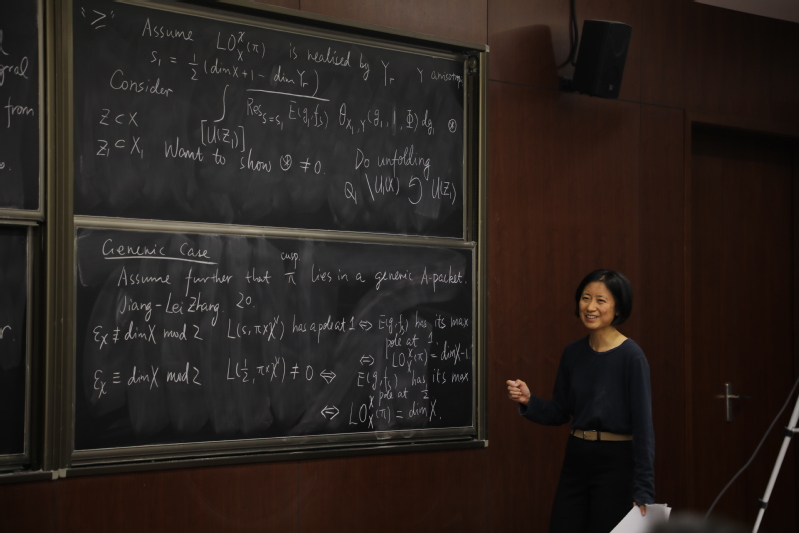 gral
from
"≥"
Assume LO_X^χ(π) is realised by Y_r Y anisotrop
s_1 = 1/2 (dim X + 1 - dim Y_r)
Consider ∫_[U(Z_1)] \overline{Res_{s=s_1} E(g_1, f_s)} θ_{X_1,Y}(g_1, 1, Φ) dg_1 ⊛
Z ⊂ X
Z_1 ⊂ X_1 Want to show ⊛ ≠ 0.
Do unfolding
Q_1 \ U(X_1) ↺ U(Z_1)
Generic Case
cusp
Assume further that π lies in a generic A-packet.
Jiang-Lei Zhang. 20.
ε_χ ≢ dim X mod 2 L(s, π×χ^∨) has a pole at 1 ⇔ E(g, f_s) has its max
pole at 1
⇔ LO_X^χ(π) = dim X-1.
ε_χ ≡ dim X mod 2 L(1/2, π×χ^∨) ≠ 0 ⇔ E(g, f_s) has its max
pole at 1/2
⇔ LO_X^χ(π) = dim X.